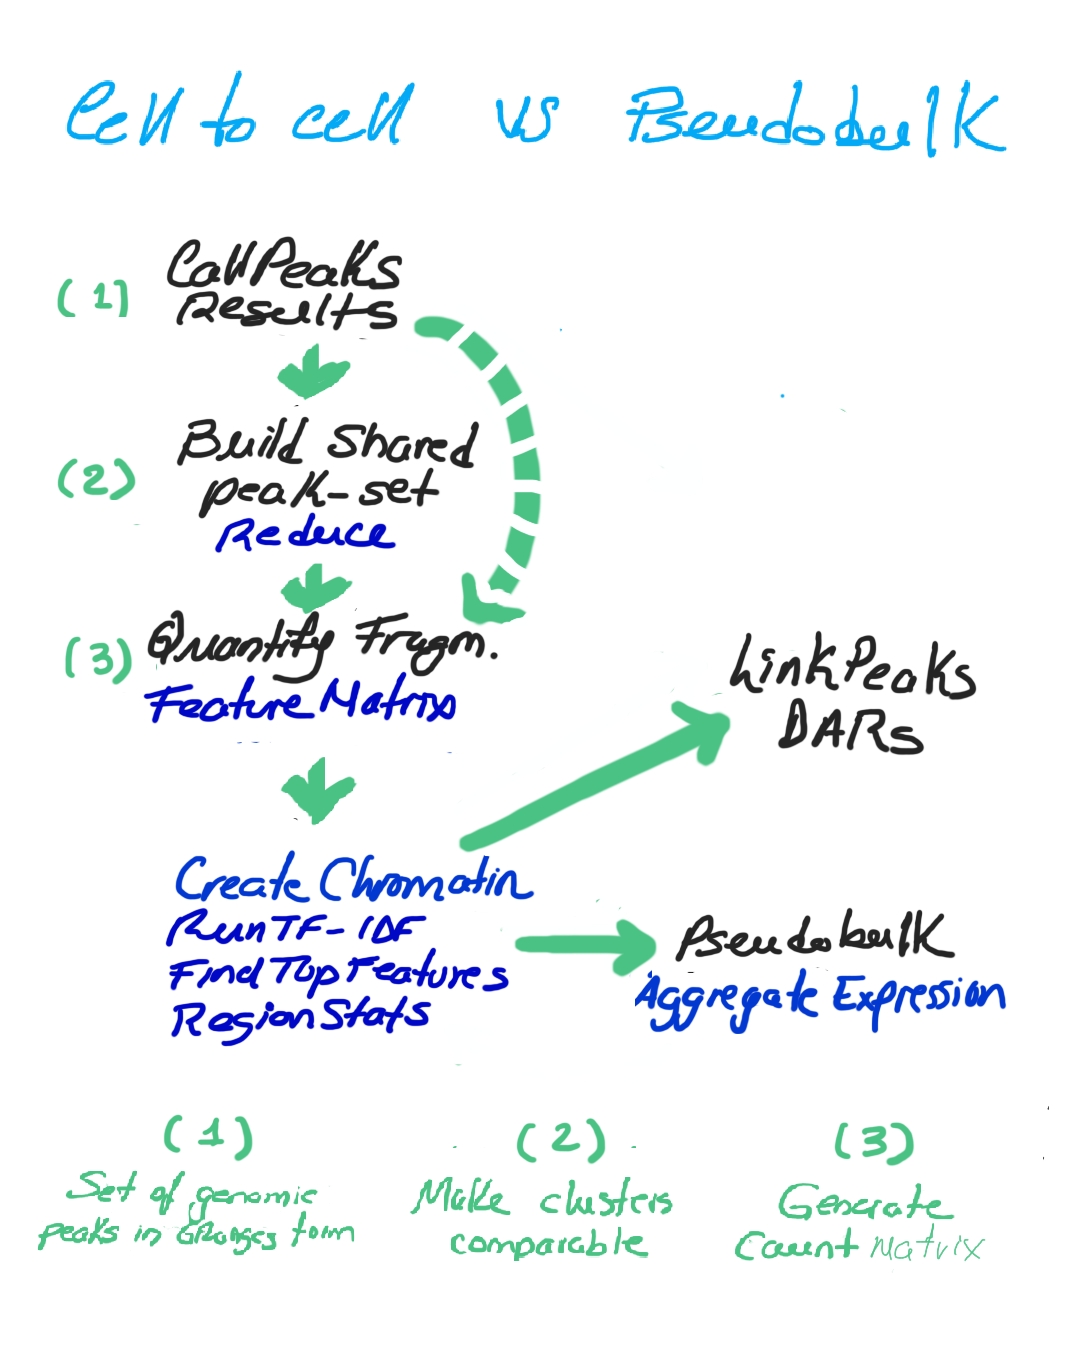 Cell to cell vs Pseudobulk
(1) CallPeaks
Results
(2) Build Shared
peak-set
Reduce
(3) Quantify Fragm.
Feature Matrix
LinkPeaks
DARs
Create Chromatin
RunTF-IDF
FindTopFeatures
RegionStats
Pseudobulk
Aggregate Expression
(1)
Set of genomic
peaks in GRanges form
(2)
Make clusters
comparable
(3)
Generate
Count Matrix